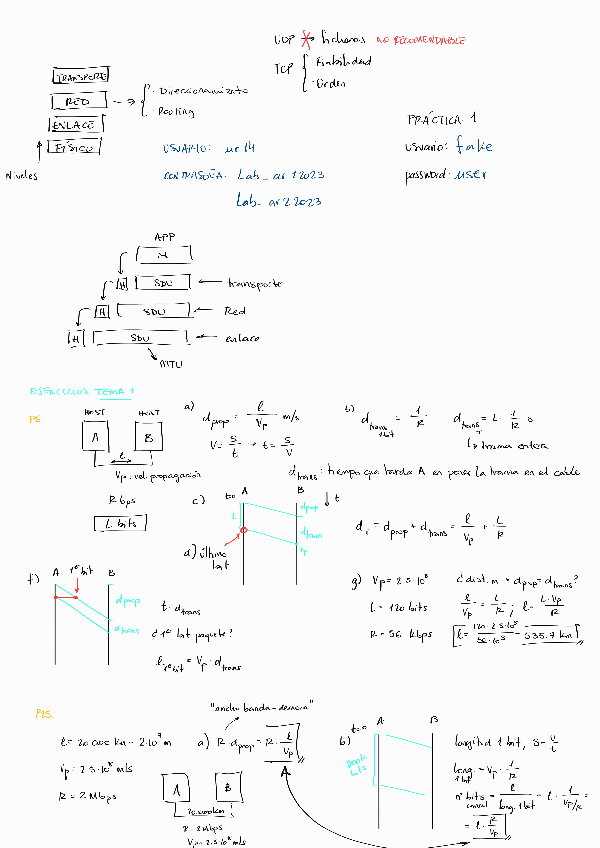 UDP → ficheros NO RECOMENDABLE
TCP { Fiabilidad
Orden
TRANSPORTE
RED → { · Direccionamiento
· Routing
ENLACE
FÍSICO
Niveles
PRÁCTICA 1
USUARIO: ur 14
usuario: fake
CONTRASEÑA: Lab_ar12023
password: user
Lab_ar22023
APP
M
H SDU ← transporte
H SDU ← Red
H SDU ← enlace
MTU
EJERCICIOS TEMA 1
P6
HOST HOST
A B
l
Vp: vel. propagación
R bps
L bits
a) d prop = l / Vp m/s
V = s/t → t = s/V
b) d trans 1 bit = 1/R
d trans = L · 1/R s
↳ trama entera
d trans: tiempo que tarda A en poner la trama en el cable
c) t=0 A B ↓ t
L
d prop
d trans
tp
d) último bit
d = d prop + d trans = l/Vp + L/R
f) A 1er bit B
d prop
d trans
t = d trans
d 1er bit paquete?
l 1er bit = Vp · d trans
g) Vp = 2.5·10⁸
L = 120 bits
R = 56 kbps
¿dist. m → d prop = d trans?
l/Vp = L/R ; l = L·Vp/R
l = 120·2.5·10⁸ / 56·10³ = 535.7 km
P25.
l = 20 000 km = 2·10⁷ m
Vp = 2.5·10⁸ m/s
R = 2 Mbps
"ancho banda-demora"
a) R · d prop = R · l/Vp
A B
20.000km
R = 2Mbps
Vp = 2.5·10⁸ m/s
b) t=0 A B
longitud 1 bit, s = v/t
long. 1 bit = Vp · 1/R
nº bits canal = l / long. 1 bit = l · 1 / Vp/R =
= l · R/Vp